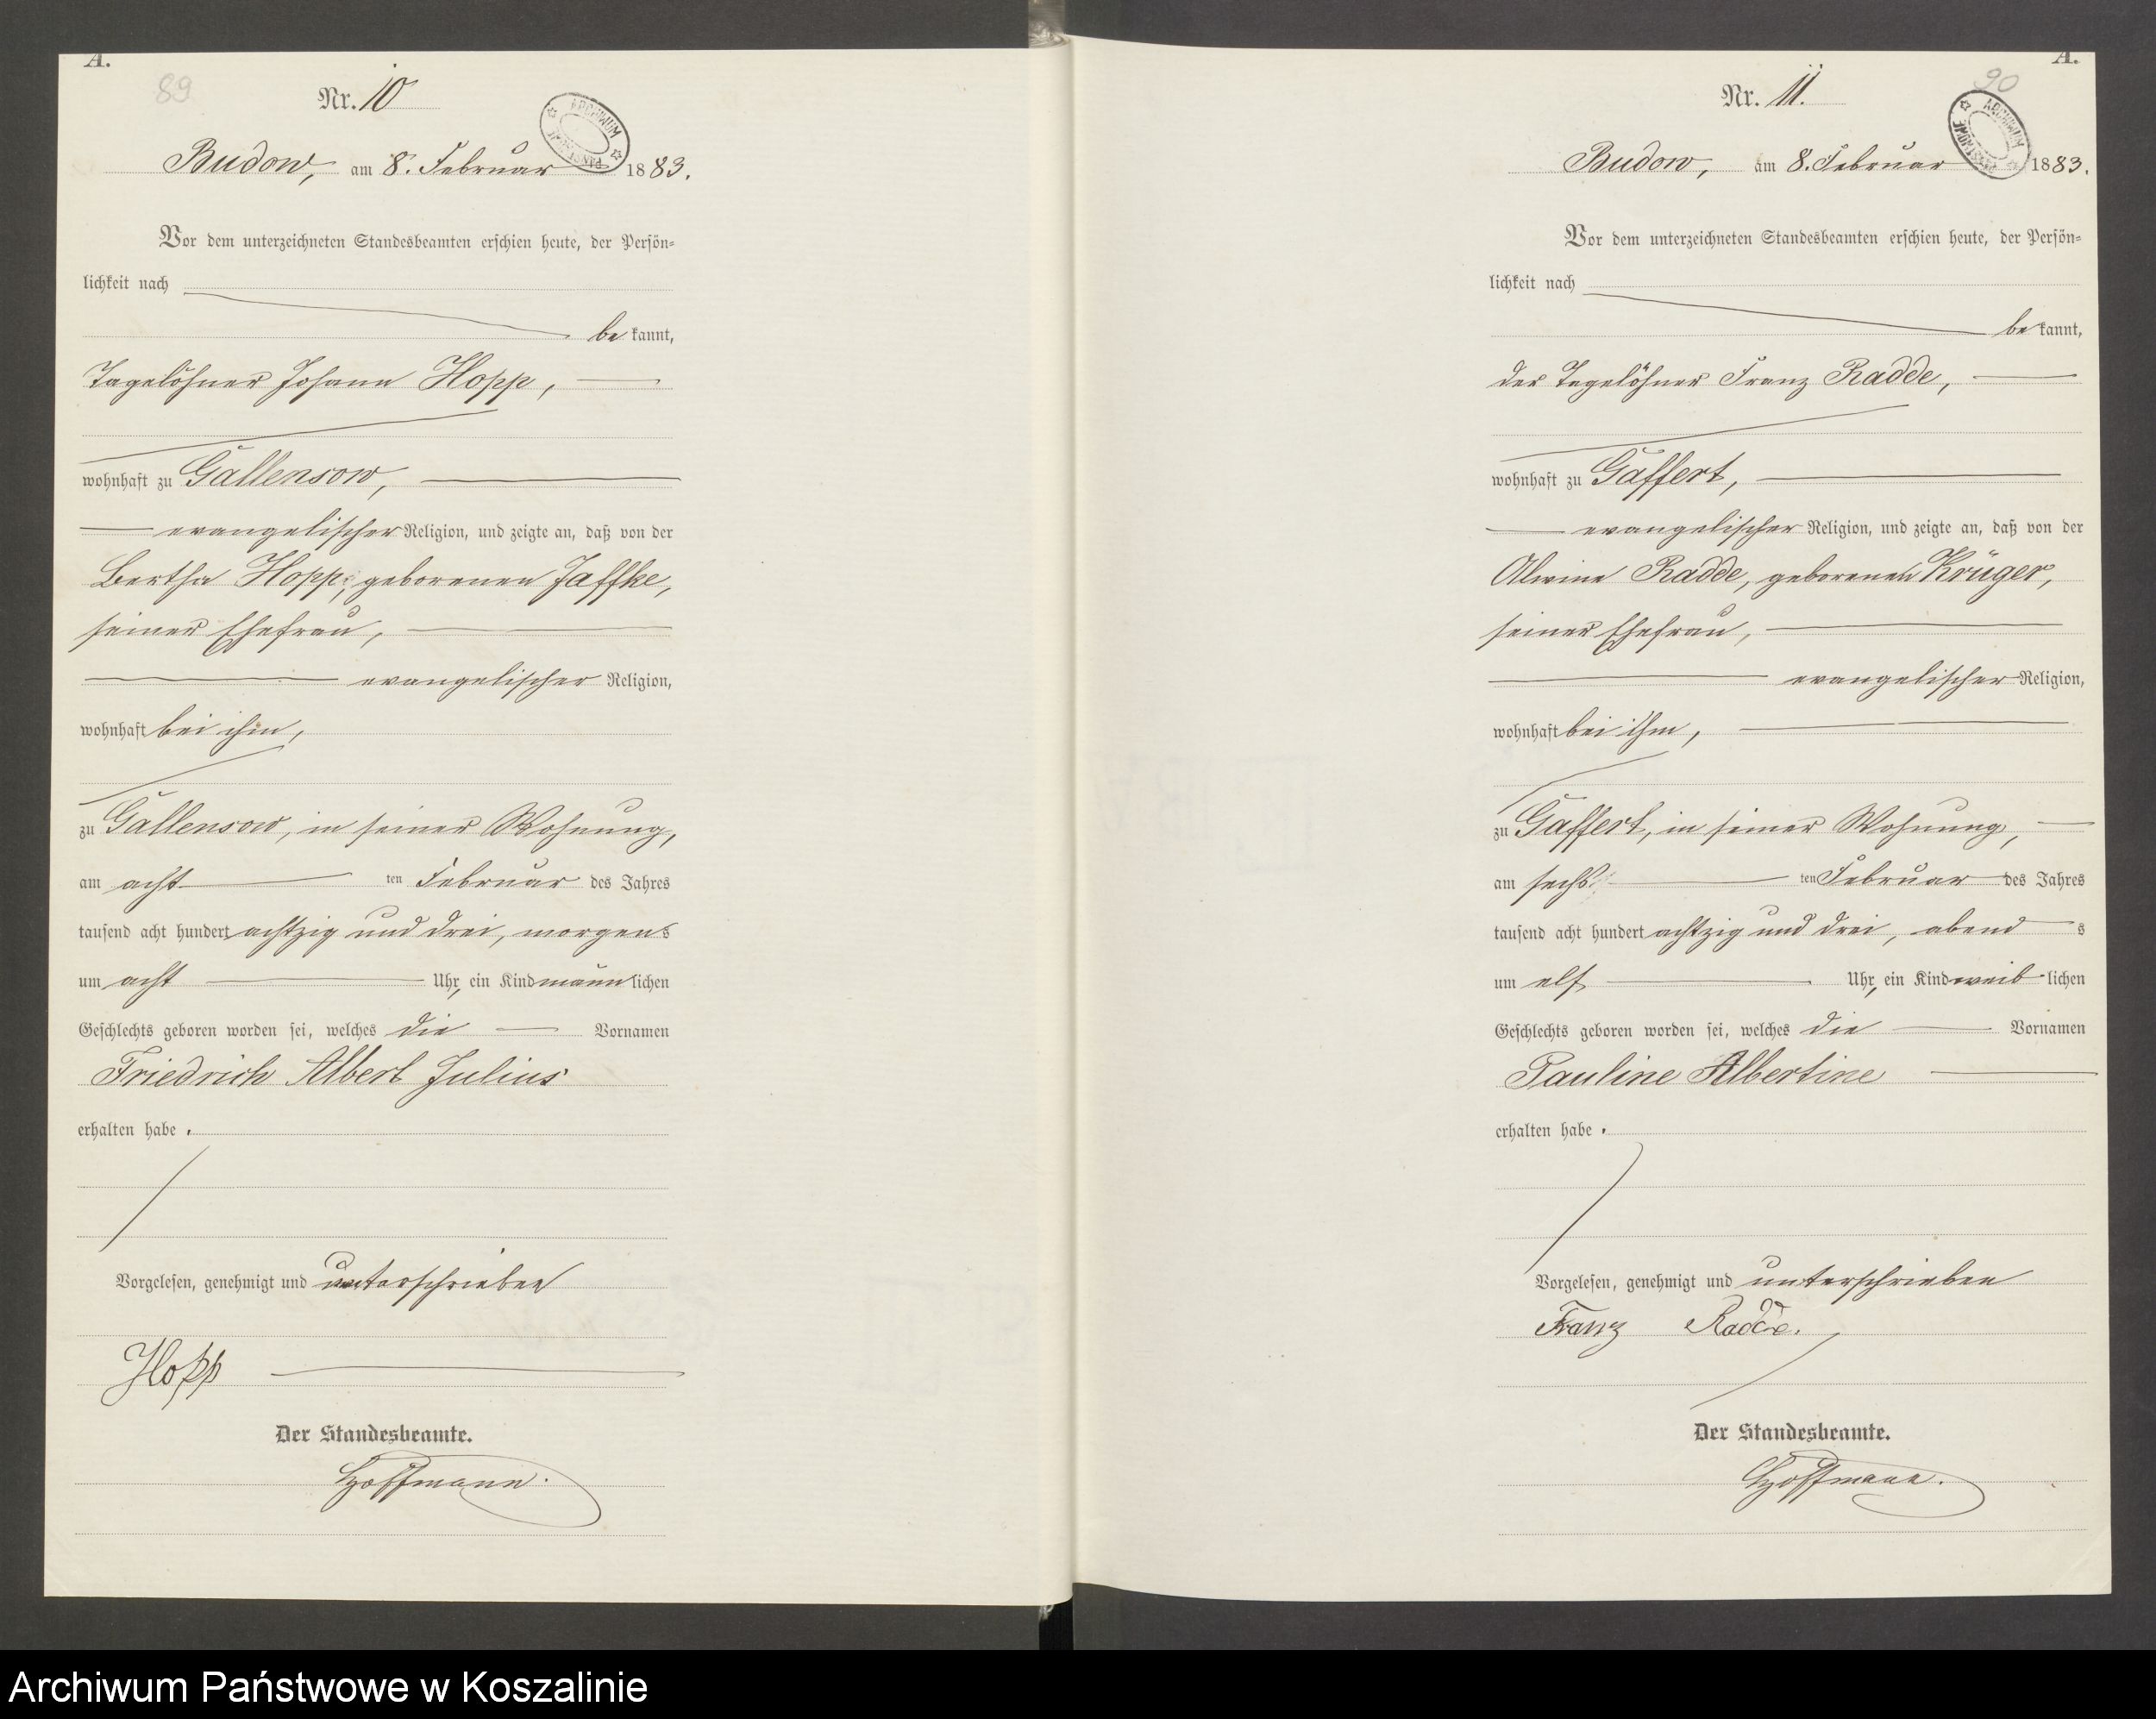 A.
89
Nr. 10
ARCHIWUM
Budow, am 8. Februar 1883.
Vor dem unterzeichneten Standesbeamten erschien heute, der Persön=
lichkeit nach
bekannt,
Tagelöhner Johann Hopp,
wohnhaft zu Gallensow,
evangelischer Religion, und zeigte an, daß von der
Bertha Hopp, geborenen Jaffke,
seiner Ehefrau,
evangelischer Religion,
wohnhaft bei ihm,
zu Gallensow, in seiner Wohnung,
am acht ten Februar des Jahres
tausend acht hundert achtzig und drei, morgens
um acht Uhr, ein Kind männlichen
Geschlechts geboren worden sei, welches die Vornamen
Friedrich Albert Julius
erhalten habe.
Vorgelesen, genehmigt und unterschrieben
Hopp
Der Standesbeamte.
Hoffmann.
A.
90
Nr. 11.
ARCHIWUM
Budow, am 8. Februar 1883.
Vor dem unterzeichneten Standesbeamten erschien heute, der Persön=
lichkeit nach
bekannt,
der Tagelöhner Franz Radde,
wohnhaft zu Gaffert,
evangelischer Religion, und zeigte an, daß von der
Alwine Radde, geborenen Krüger,
seiner Ehefrau,
evangelischer Religion,
wohnhaft bei ihm,
zu Gaffert, in seiner Wohnung,
am sechs ten Februar des Jahres
tausend acht hundert achtzig und drei, abend s
um elf Uhr, ein Kind weiblichen
Geschlechts geboren worden sei, welches die Vornamen
Pauline Albertine
erhalten habe.
Vorgelesen, genehmigt und unterschrieben
Franz Radde.
Der Standesbeamte.
Hoffmann.
Archiwum Państwowe w Koszalinie